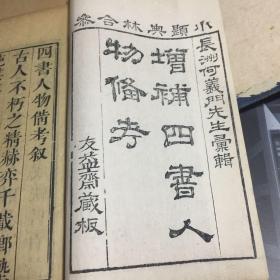 小題典林合參
長洲何義門先生彙輯
增補四書人
物備考
友益齋藏板
四書人物備考叙
古人不朽之精赫奕千載鄒魯